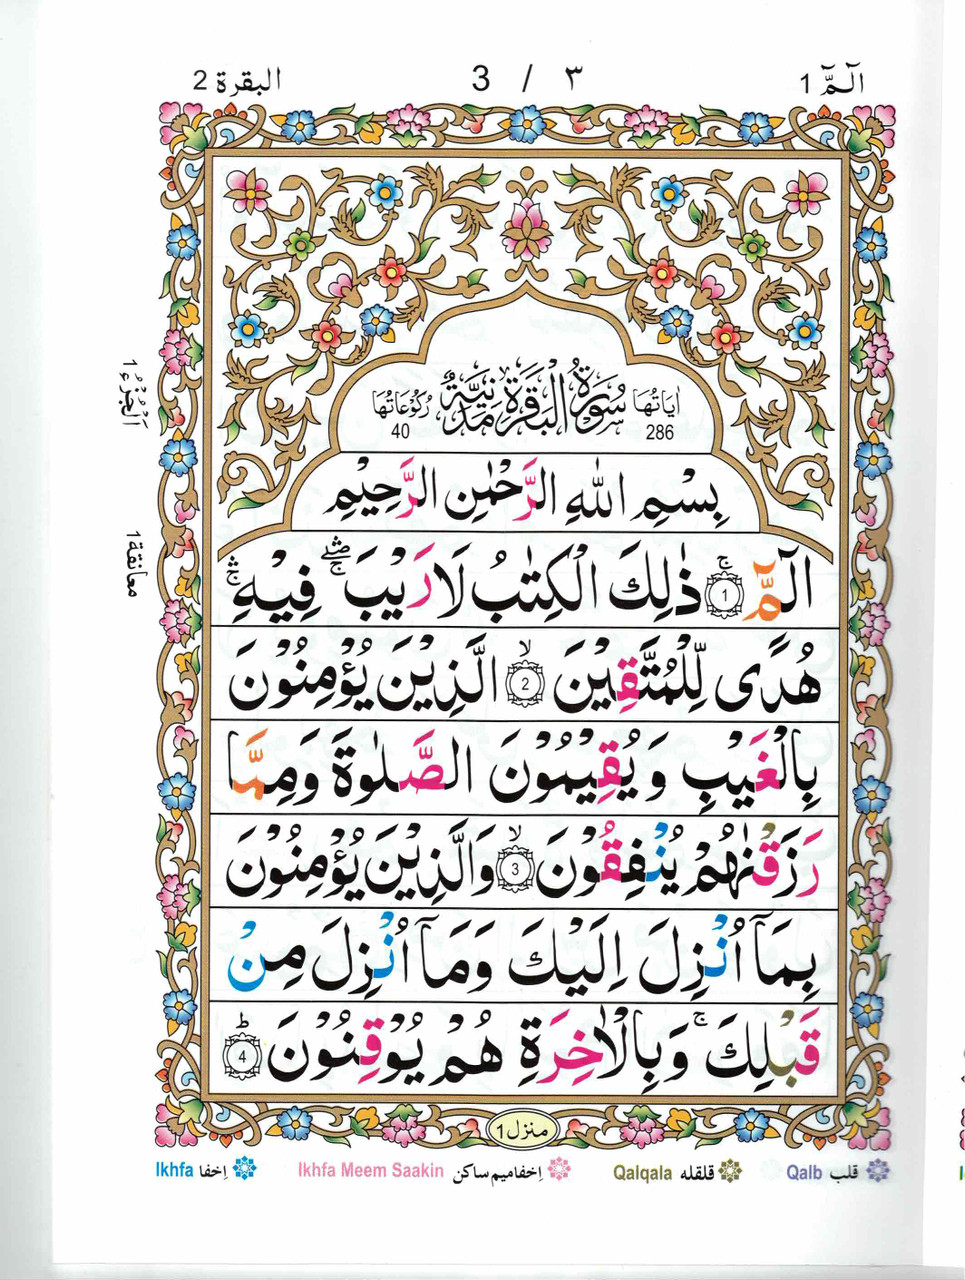 الٓمّٓ 1
3 / ٣
البقرة 2
اٰيَاتُهَا 286
سُوْرَةُ الْبَقَرَةِ مَدَنِيَّةٌ
رُكُوْعَاتُهَا 40
بِسْمِ اللّٰهِ الرَّحْمٰنِ الرَّحِيْمِ
الٓمّٓ ۚ 1 ذٰلِكَ الْكِتٰبُ لَا رَيْبَ ۛۖۚ فِيْهِ ۛۚ
هُدًى لِّلْمُتَّقِيْنَ ۙ 2 الَّذِيْنَ يُؤْمِنُوْنَ
بِالْغَيْبِ وَيُقِيْمُوْنَ الصَّلٰوةَ وَمِمَّا
رَزَقْنٰهُمْ يُنْفِقُوْنَ ۙ 3 وَالَّذِيْنَ يُؤْمِنُوْنَ
بِمَآ اُنْزِلَ اِلَيْكَ وَمَآ اُنْزِلَ مِنْ
قَبْلِكَ ۚ وَبِالْاٰخِرَةِ هُمْ يُوْقِنُوْنَ ؕ 4
اَلْجُزْءُ 1
معانقة 1
منزل 1
قلب Qalb
قلقله Qalqala
اِخفامیم ساکن Ikhfa Meem Saakin
اِخفا Ikhfa